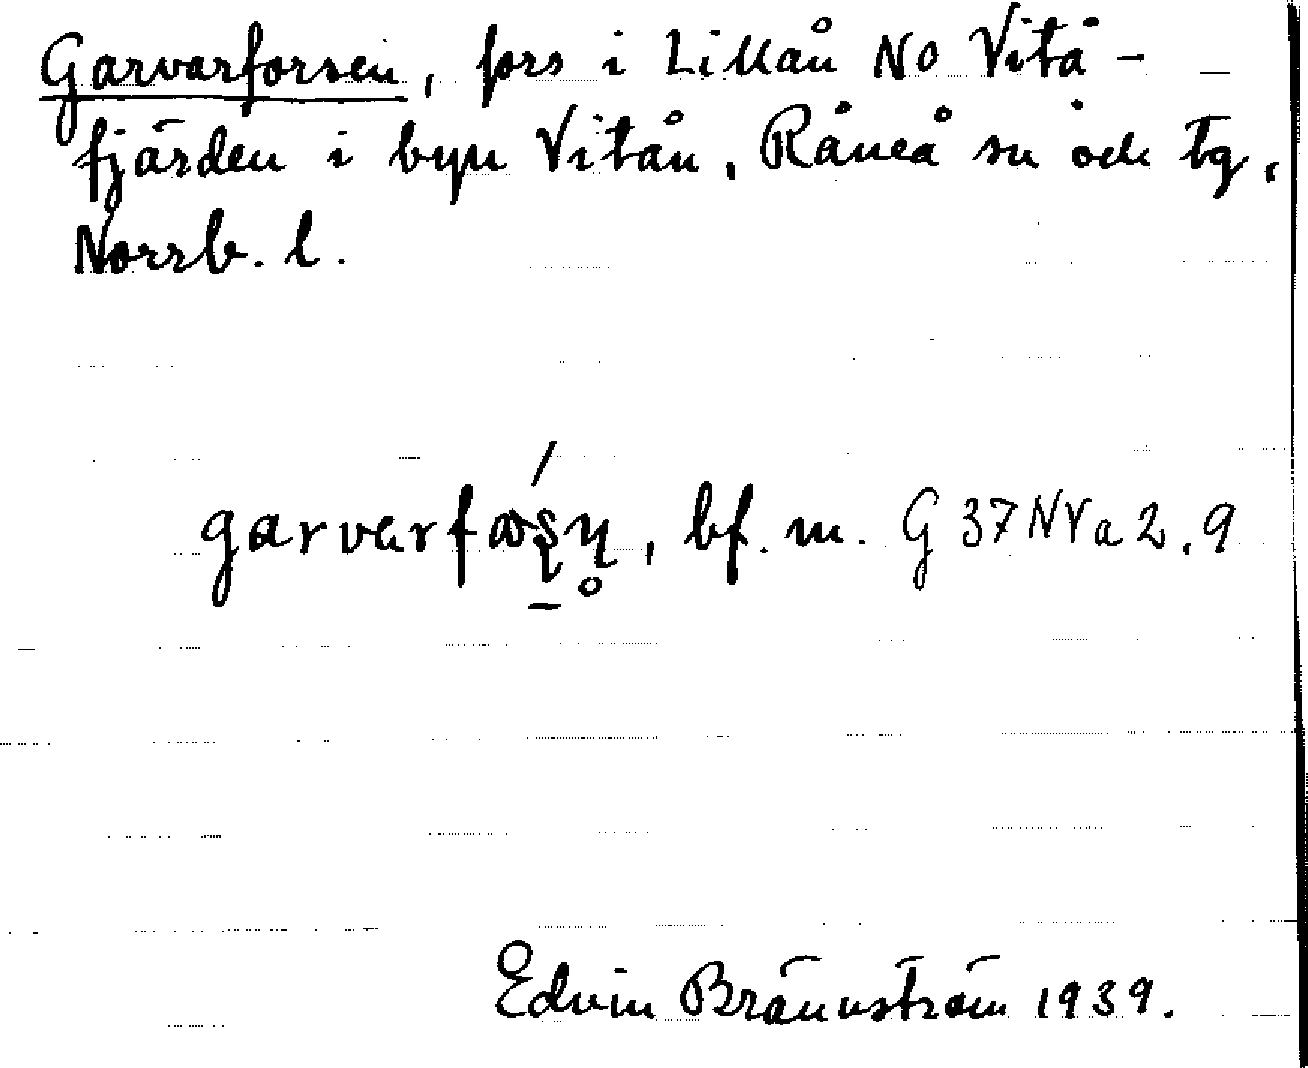 Garvarforsen, fors i Lillån NO Vitå-
fjärden i byn Vitån, Råneå sn och tg,
Norrb. l.
garvarfɷʂn̥, bf. m. G 37 NVa 2.9
Edvin Brännström 1939.